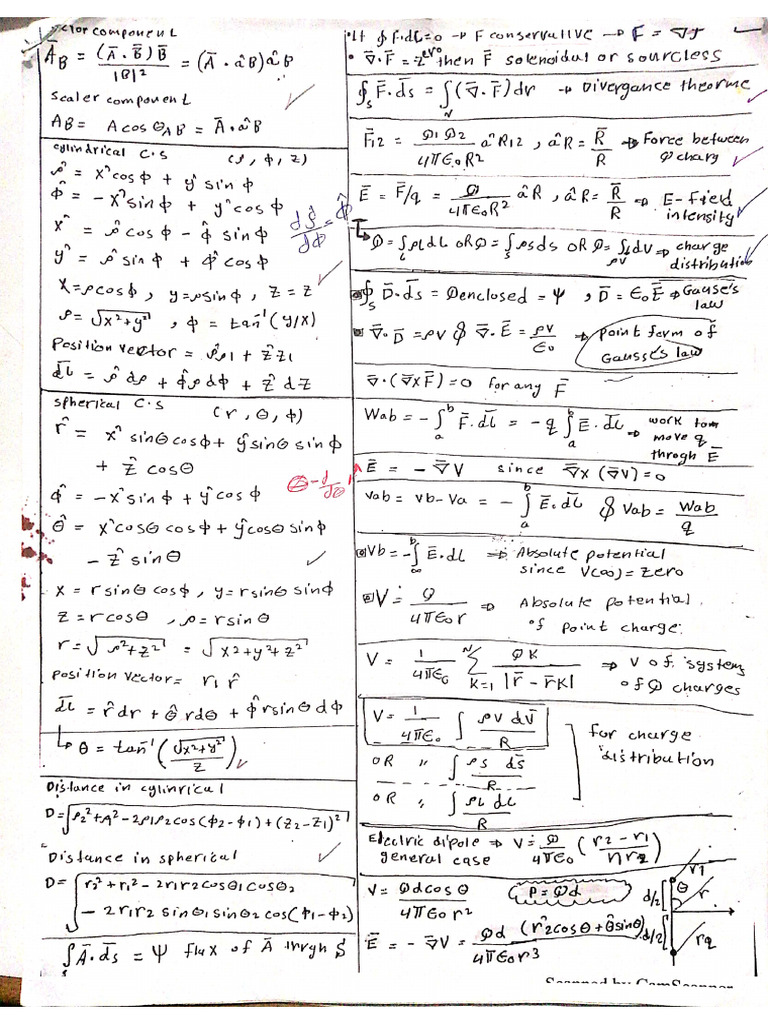 vector component
Ā_B = (Ā . B̄)B̄ / |B|² = (Ā . âB) âB
scaler component
AB = A cos θAB = Ā . âB
cylindrical C.S (ρ, ϕ, z)
ρ̂ = x̂ cosϕ + ŷ sinϕ
ϕ̂ = -x̂ sinϕ + ŷ cosϕ
x̂ = ρ̂ cosϕ - ϕ̂ sinϕ
dρ̂/dϕ = ϕ̂
ŷ = ρ̂ sinϕ + ϕ̂ cosϕ
x = ρcosϕ, y = ρsinϕ, z = z
ρ = √(x²+y²), ϕ = tan⁻¹(y/x)
Position vector = ρ̂ρ1 + ẑz1
dl̄ = ρ̂ dρ + ϕ̂ρdϕ + ẑ dz
spherical C.S (r, θ, ϕ)
r̂ = x̂ sinθcosϕ + ŷ sinθ sinϕ
+ ẑ cosθ
ϕ̂ = -x̂ sinϕ + ŷ cosϕ
θ̂ = x̂ cosθ cosϕ + ŷ cosθ sinϕ
- ẑ sinθ
x = r sinθ cosϕ, y = r sinθ sinϕ
z = r cosθ, ρ = r sinθ
r = √(ρ²+z²) = √(x²+y²+z²)
position vector = r1 r̂
dl̄ = r̂ dr + θ̂ rdθ + ϕ̂ r sinθ dϕ
↳ θ = tan⁻¹(√(x²+y²) / z)
Distance in cylinrical
D = √(ρ2² + ρ1² - 2ρ1ρ2cos(ϕ2-ϕ1) + (z2-z1)²)
Distance in spherical
D = √(r2² + r1² - 2r1r2cosθ1cosθ2
- 2r1r2 sinθ1 sinθ2 cos(ϕ1-ϕ2))
∫s Ā.ds̄ = Ψ flux of Ā thrgh S
• If ∮F.dl = 0 → F conservative → F = ∇f
• ∇̄.F̄ = zero then F̄ solenoidal or sourcless
∮s F̄.ds̄ = ∫v (∇̄.F̄)dv → Divergance theorme
F̄12 = Q1Q2 / 4πϵ0R² âR12, âR = R̄/R ⇒ Force between
Q charg
Ē = F̄/q = Q / 4πϵ0R² âR, âR = R̄/R ⇒ E-Field
intensity
↳ Q = ∫L ρLdL OR Q = ∫s ρsds OR Q = ∫v ρv dv ⇒ charge
distribution
∮s D̄.ds̄ = Qenclosed = Ψ, D̄ = ϵ0Ē ⇒ Gauss's
law
∇̄.D̄ = ρv & ∇̄.Ē = ρv/ϵ0 ⇒ point form of
Gausse's law
∇̄.(∇̄xF̄) = 0 for any F̄
Wab = -∫ₐᵇ F̄.dl̄ = -q∫ₐᵇ Ē.dl̄ ⇒ work to
move q
throgh Ē
Ē = -∇̄V since ∇̄x(∇̄V) = 0
Vab = Vb - Va = -∫ₐᵇ Ē.dl̄ & Vab = Wab/q
Vb = -∫∞ᵇ Ē.dL ⇒ Absolute potential
since V(∞) = zero
V = Q / 4πϵ0r ⇒ Absolute potential
of point charge
V = 1/4πϵ0 Σ(K=1, N) QK / |r̄ - r̄K| ⇒ V of system
of Q charges
V = 1/4πϵ0 ∫ ρv dv̄ / R
for charge
distribution
OR " ∫ ρs ds̄ / R
OR " ∫ ρL dL / R
Electric dipole ⇒ V = Q/4πϵ0 (r2 - r1 / r1r2)
general case
V = Qd cosθ / 4πϵ0r²
P = Qd
Ē = -∇̄V = Qd / 4πϵ0r³ (r̂2cosθ + θ̂sinθ)
r1
θ
r
d/2
d/2
Scanned by CamScanner